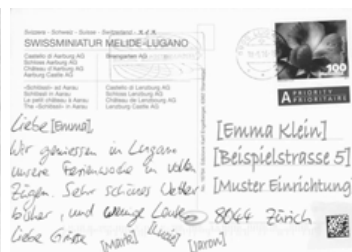 Svizzera - Schweiz - Suisse - Switzerland -
SWISSMINIATUR MELIDE-LUGANO
Castello di Aarburg AG
Schloss Aarburg AG
Château d'Aarburg AG
Aarburg Castle AG
Bremgarten AG
«Schlössli» ad Aarau
Schlössli in Aarau
Le petit château à Aarau
The «Schlössli» in Aarau
Castello di Lenzburg AG
Schloss Lenzburg AG
Château de Lenzbourg AG
Lenzburg Castle AG
100
A PRIORITY
PRIORITAIRE
Liebe [Emma],
Wir geniessen in Lugano
unsere Ferienwoche in vollen
Zügen. Sehr schönes Wetter
bisher, und wenige Leute
Liebe Grüsse
[Marie] [Lucia] [Jaron]
[Emma Klein]
[Beispielstrasse 5]
[Muster Einrichtung]
8044 Zürich